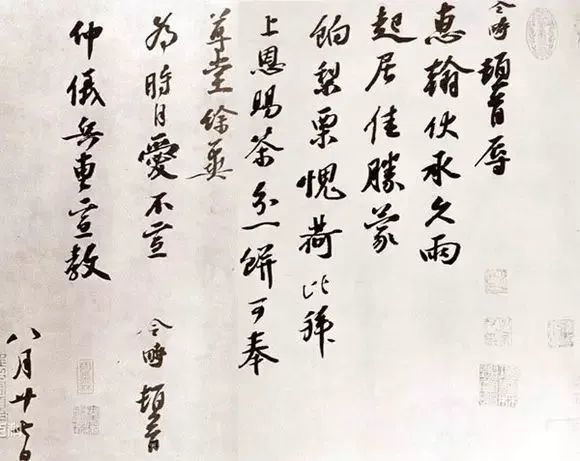 令畤頓首辱
惠翰伏承久雨
起居佳勝蒙
餉梨栗愧荷比拜
上恩賜茶分一餅可奉
尊堂餘冀
為時自愛不宣
令畤頓首
仲儀兵曹宣教
八月廿七日